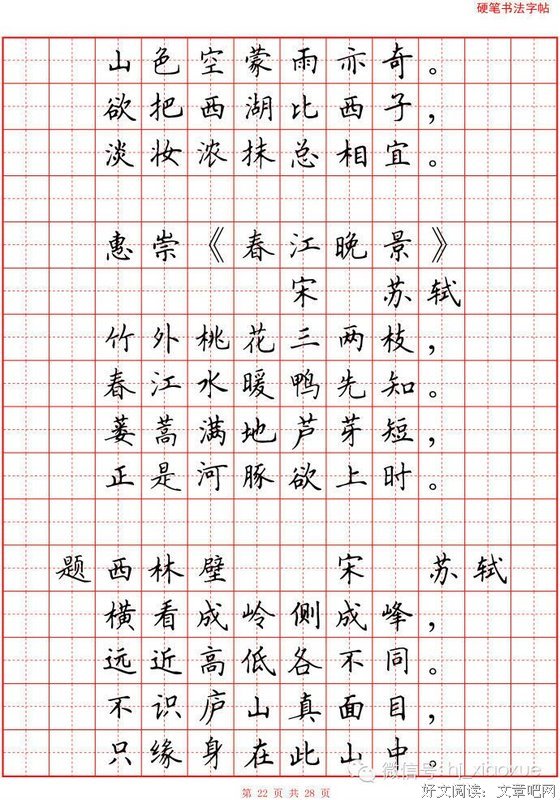 硬笔书法字帖
山色空蒙雨亦奇。
欲把西湖比西子，
淡妆浓抹总相宜。
惠崇《春江晚景》
宋 苏轼
竹外桃花三两枝，
春江水暖鸭先知。
蒌蒿满地芦芽短，
正是河豚欲上时。
题西林壁 宋 苏轼
横看成岭侧成峰，
远近高低各不同。
不识庐山真面目，
只缘身在此山中。
微信号: hj_xiaoxue
第 22 页 共 28 页
好文阅读：文章吧网